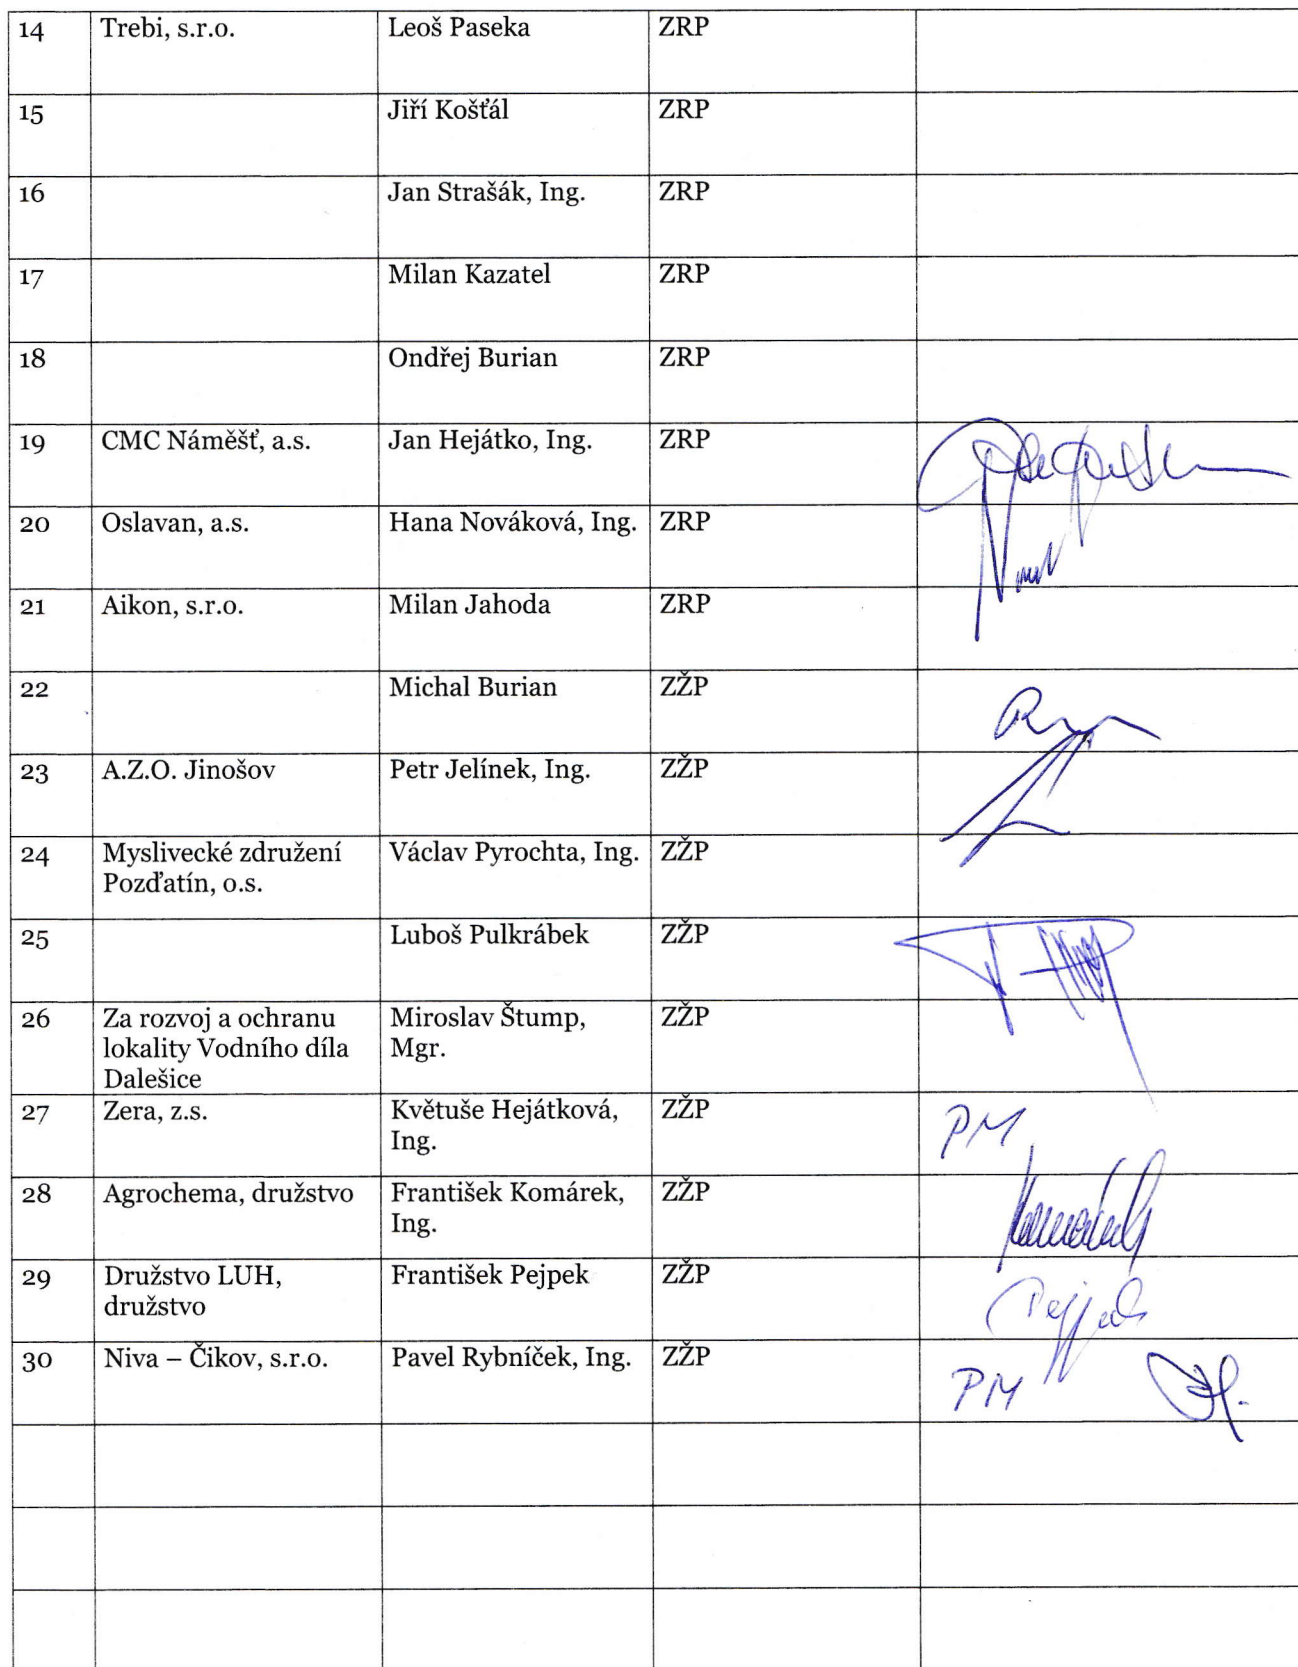 14 Trebi, s.r.o. Leoš Paseka ZRP
15 Jiří Košťál ZRP
16 Jan Strašák, Ing. ZRP
17 Milan Kazatel ZRP
18 Ondřej Burian ZRP
19 CMC Náměšť, a.s. Jan Hejátko, Ing. ZRP
20 Oslavan, a.s. Hana Nováková, Ing. ZRP
21 Aikon, s.r.o. Milan Jahoda ZRP
22 Michal Burian ZŽP
23 A.Z.O. Jinošov Petr Jelínek, Ing. ZŽP
24 Myslivecké združení Václav Pyrochta, Ing. ZŽP
Pozďatín, o.s.
25 Luboš Pulkrábek ZŽP
26 Za rozvoj a ochranu Miroslav Štump, ZŽP
lokality Vodního díla Mgr.
Dalešice
27 Zera, z.s. Květuše Hejátková, ZŽP PM
Ing.
28 Agrochema, družstvo František Komárek, ZŽP
Ing.
29 Družstvo LUH, František Pejpek ZŽP
družstvo
30 Niva – Čikov, s.r.o. Pavel Rybníček, Ing. ZŽP PM